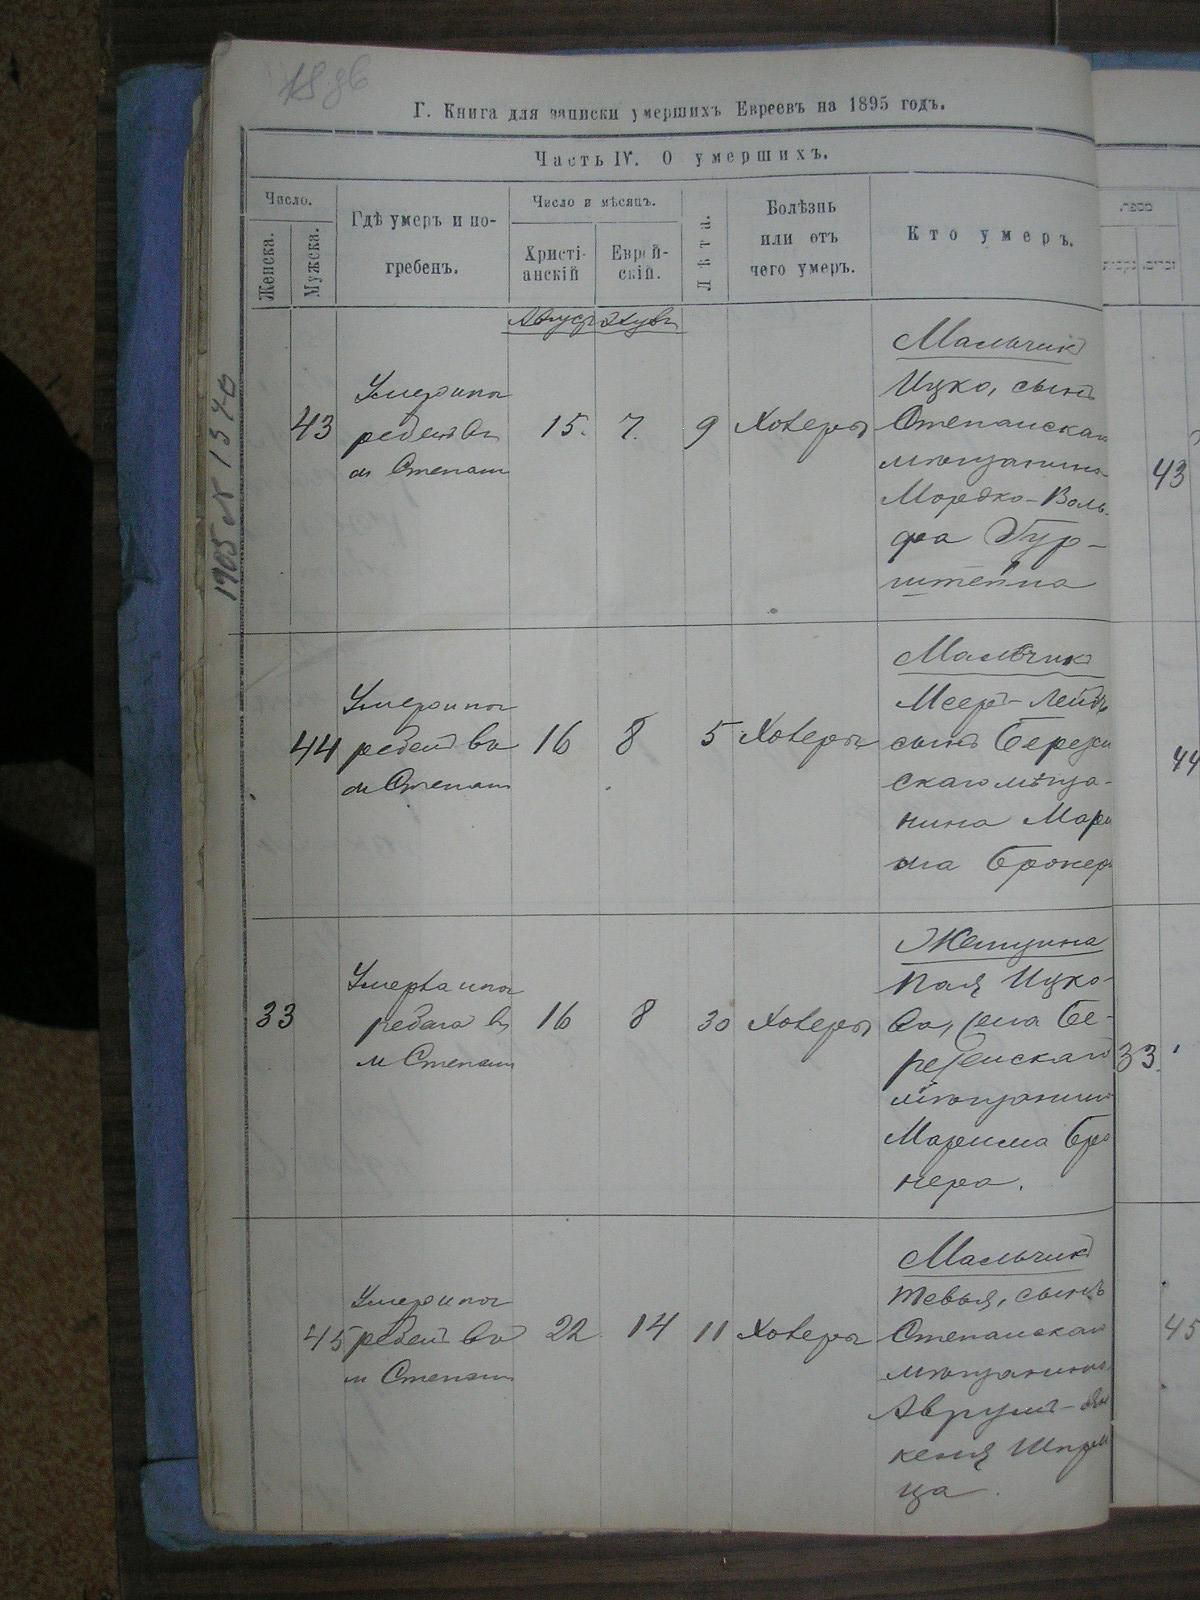 Г. Книга для записки умершихъ Евреевъ на 1895 годъ.
Часть IV. О умершихъ.
Число.
Женска.
Мужска.
Гдѣ умеръ и по-
гребенъ.
Число и мѣсяцъ.
Христі-
анскій
Еврей-
скій.
Лѣта.
Болѣзнь
или отъ
чего умеръ.
Кто умеръ.
1905 N 1570
43
Умеръ и пог
ребенъ въ
м Степани
15.
7.
9
Холеры
Мальчикъ
Ицко, сынъ
Степанскаго
мѣщанина
Мордко-Воль-
фа Гур-
штейна
43
44
Умеръ и пог
ребенъ въ
м Степани
16
8
5
Холеры
Мальчикъ
Мееръ-Лейбъ
сынъ
скаго мѣща-
нина
44
33
Умерла и пог
ребена въ
м Степани
16
8
30
Холеры
Женщина
Ицко-
ва, жена Бе-
резенскаго
мѣщанина
нера.
33
45
Умеръ и пог
ребенъ въ
м Степани
22
14
11
Холеры
Мальчикъ
Тевья, сынъ
Степанскаго
мѣщанина
Аврумъ-
ца.
45